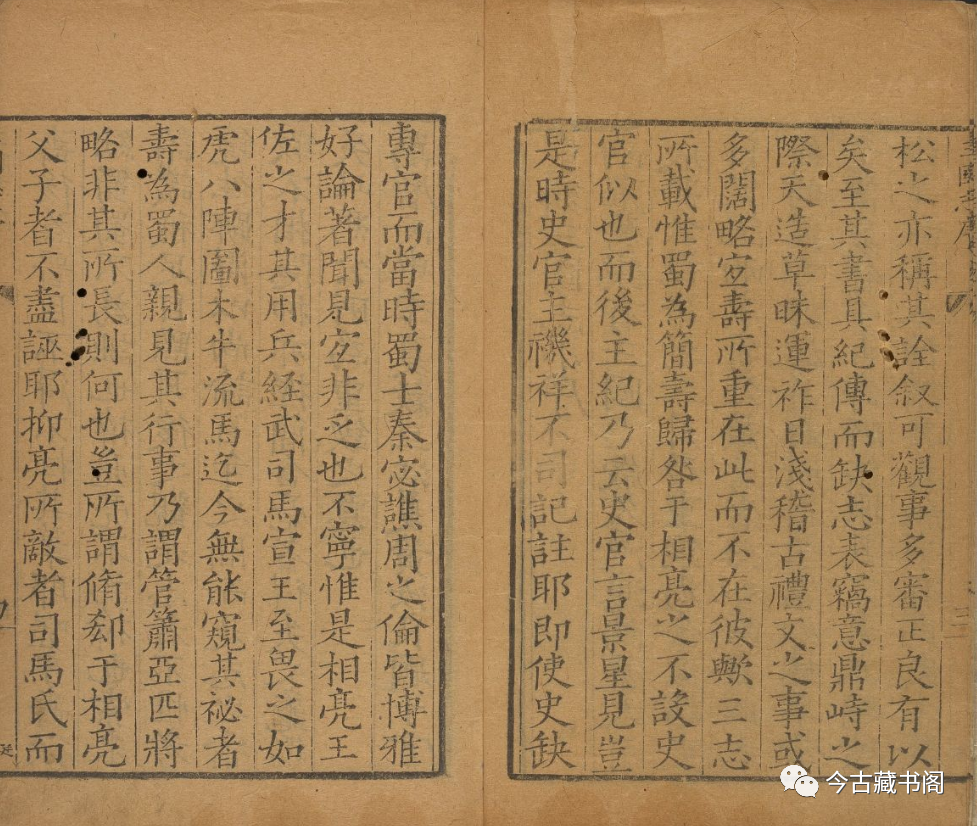 松之亦稱其詮叙可觀事多審正良有以
矣至其書具紀傳而缺志表竊意鼎峙之
際天造草昧運祚日淺稽古禮文之事或
多闊略宐壽所重在此而不在彼歟三志
所載惟蜀為簡壽歸咎于相亮之不設史
官似也而後主紀乃云史官言景星見豈
是時史官主禨祥不司記註耶即使史缺
專官而當時蜀士秦宓譙周之倫皆博雅
好論著聞見宐非乏也不寧惟是相亮王
佐之才其用兵経武司馬宣王至畏之如
虎八陣圖木牛流馬迄今無能窺其祕者
壽為蜀人親見其行事乃謂管簫亞匹將
略非其所長則何也豈所謂脩郄于相亮
父子者不盡誣耶抑亮所敵者司馬氏而
今古藏书阁